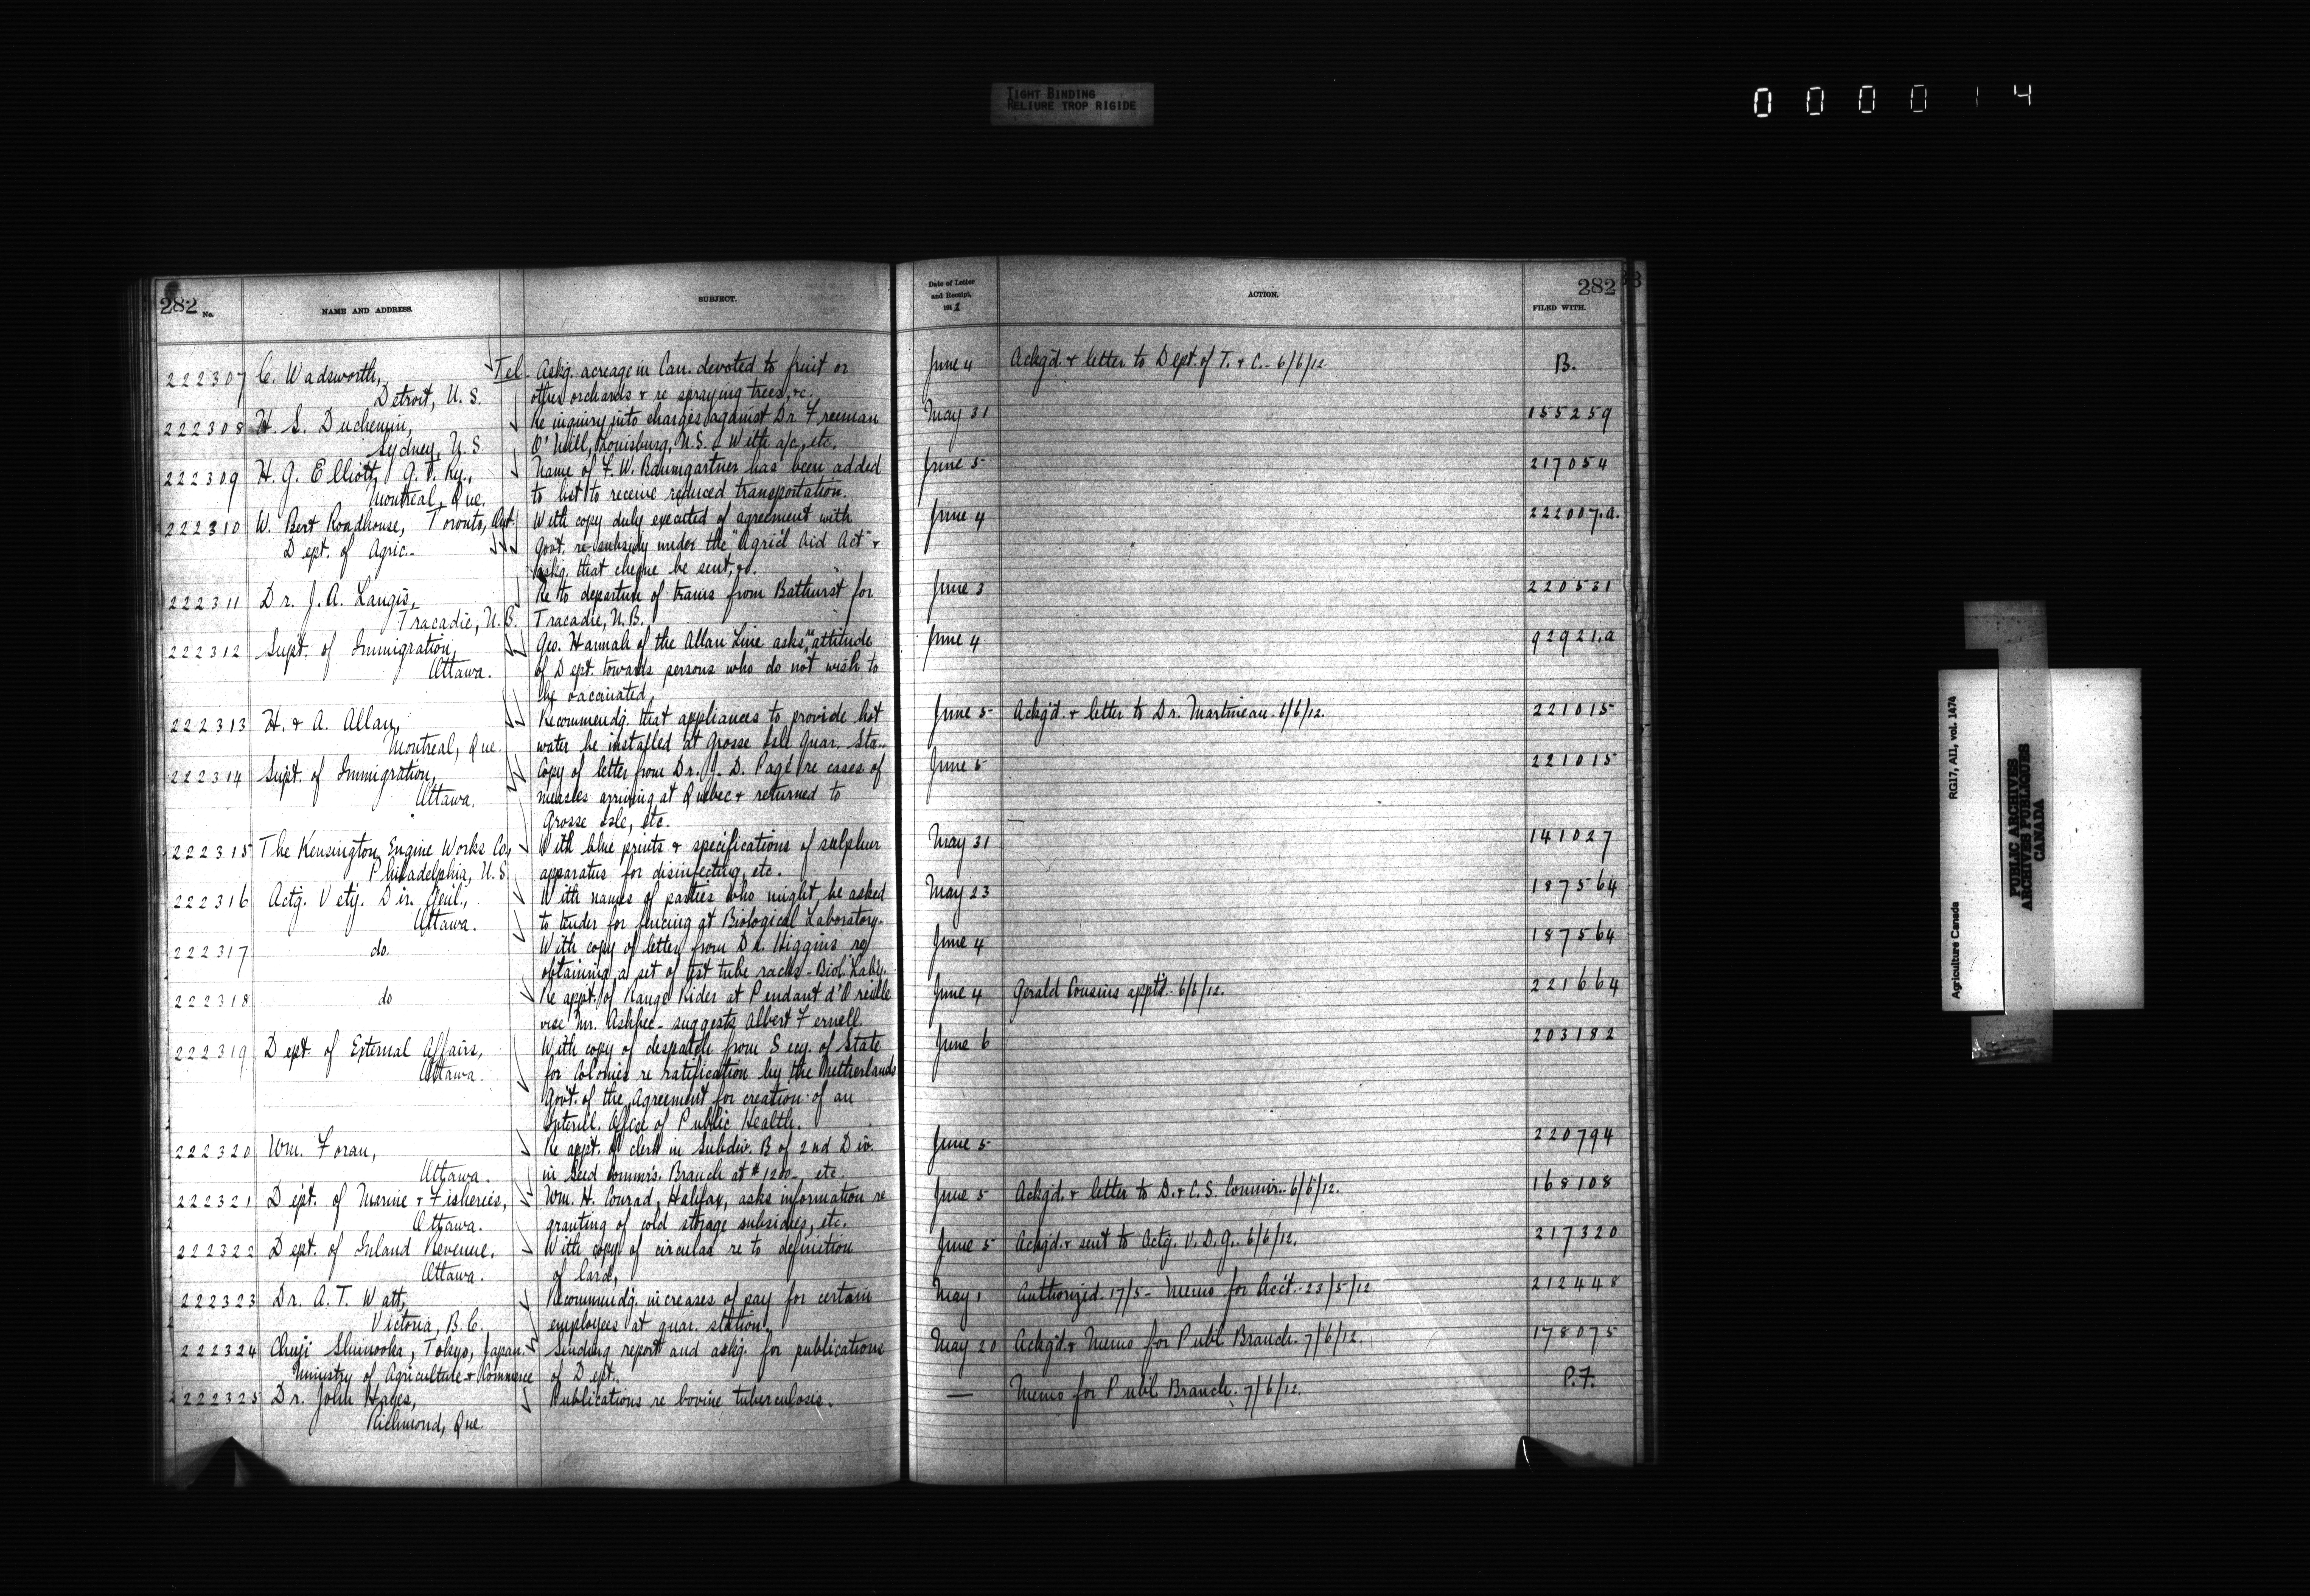 TIGHT BINDING
RELIURE TROP RIGIDE
000014
282 No. NAME AND ADDRESS. SUBJECT.
Date of Letter and Receipt, 1912 ACTION. FILED WITH. 282
222307 C. Wadsworth, Tel. Askg. acreage in Can. devoted to fruit or June 4 Ackg'd. & letter to Dept. of T. & C. - 6/6/12. B.
Detroit, U.S. other orchards & re spraying trees, &c.
222308 H. S. Duchemin, Re inquiry into charges against Dr. Freeman May 31 155259
Sydney, N.S. O'Neill, Louisburg, N.S. & With a/c, etc.
222309 H. G. Elliott, G. T. Ry., Name of F. W. Baumgartner has been added June 5 217054
Montreal, Que. to list to receive reduced transportation.
222310 W. Bert Roadhouse, Toronto, Ont. With copy duly executed of agreement with June 4 222007.a.
Dept. of Agric.. Govt. re subsidy under the "Agric'l Aid Act" &
askg. that cheque be sent, &c.
222311 Dr. J. A. Langis, Re to departure of trains from Bathurst for June 3 220531
Tracadie, N.B. Tracadie, N.B.
222312 Supt. of Immigration, Geo. Hannah of the Allan Line asks attitude June 4 92921.a
Ottawa. of Dept. towards persons who do not wish to
be vaccinated.
222313 H. & A. Allan, Recommendg. that appliances to provide hot June 5 Ackg'd. & letter to Dr. Martineau. 6/6/12. 221015
Montreal, Que. water be installed at Grosse Isle Quar. Sta..
222314 Supt. of Immigration, Copy of letter from Dr. J. D. Pagé re cases of June 5 221015
Ottawa. measles arriving at Quebec & returned to
Grosse Isle, etc.
222315 The Kensington Engine Works Co., With blue prints & specifications of sulphur May 31 141027
Philadelphia, U.S. apparatus for disinfecting, etc.
222316 Actg. Vety. Dir. Genl., With names of parties who might be asked May 23 187564
Ottawa. to tender for fencing at Biological Laboratory.
222317 do. With copy of letter from Dr. Higgins re June 4 187564
obtaining a set of test tube racks - Biol. Laby.
222318 do Re appt. of Range Rider at Pendant d'Oreille June 4 Gerald Cousins appt'd. 6/6/12. 221664
vice Mr. Ashbee - suggests Albert Fernell.
222319 Dept. of External Affairs, With copy of despatch from Secy. of State June 6 203182
Ottawa. for Colonies re ratification by the Netherlands
Govt. of the Agreement for creation of an
Internl. Office of Public Health.
222320 Wm. Foran, Re appt. of clerk in Subdiv. B of 2nd Div. June 5 220794
Ottawa. in Seed Commr's. Branch at $1200. etc.
222321 Dept. of Marine & Fisheries, Wm. H. Conrad, Halifax, asks information re June 5 Ackg'd. & letter to D. & C. S. Commr. - 6/6/12. 168108
Ottawa. granting of cold storage subsidies, etc.
222322 Dept. of Inland Revenue, With copy of circular re to definition June 5 Ackg'd. & sent to Actg. V. D. G. 6/6/12. 217320
Ottawa. of lard.
222323 Dr. A. T. Watt, Recommendg. increases of pay for certain May 1 Authorized. 17/5 - Memo for Acc't. 23/5/12 212448
Victoria, B.C. employees at quar. station.
222324 Chuji Shimooka, Tokyo, Japan. Sending report and askg. for publications May 20 Ackg'd. & Memo for Publ. Branch. 7/6/12. 178075
Ministry of Agriculture & Commerce of Dept.
222325 Dr. John Hayes, Publications re bovine tuberculosis. — Memo for Publ. Branch. 7/6/12. P.F.
Richmond, Que.
Agriculture Canada RG17, AII, vol. 1474
PUBLIC ARCHIVES
ARCHIVES PUBLIQUES
CANADA